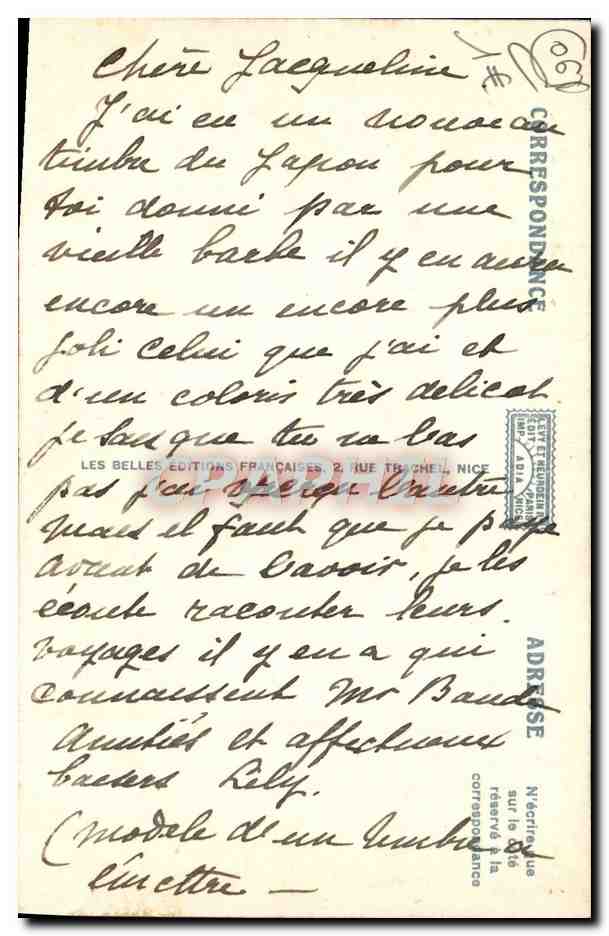 Chère Jacqueline
J'ai eu un nouveau
timbre du Japon pour
toi donné par une
vieille barbe il y en aura
encore un encore plus
joli celui que j'ai et
d'un coloris très delicat
je sais que tu
pas j'ai aperçu l'autre
mais il faut que je
avant de l'avoir, je les
écoute raconter leurs
voyages il y en a qui
connaissent Mr
Amitiés et affectueux
baisers Lily.
(modele d'un timbre a
emettre —
1€
06
CORRESPONDANCE
LES BELLES ÉDITIONS FRANÇAISES, 2, RUE TRACHEL, NICE
LEVY ET NEURDEIN R
EDIT. PARIS
IMP. ADIA NICE
ADRESSE
N'écrire que
sur le côté
réservé à la
correspondance